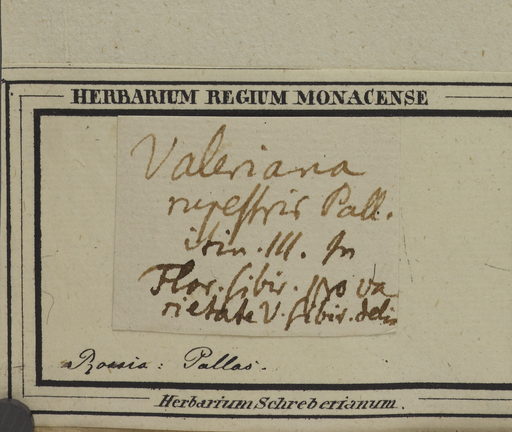 HERBARIUM REGIUM MONACENSE
Valeriana
rupestris Pall.
itin. III. In
Flor. sibir. pro va
rietate V. sibir. delin
Rossia: Pallas.
Herbarium Schreberianum.